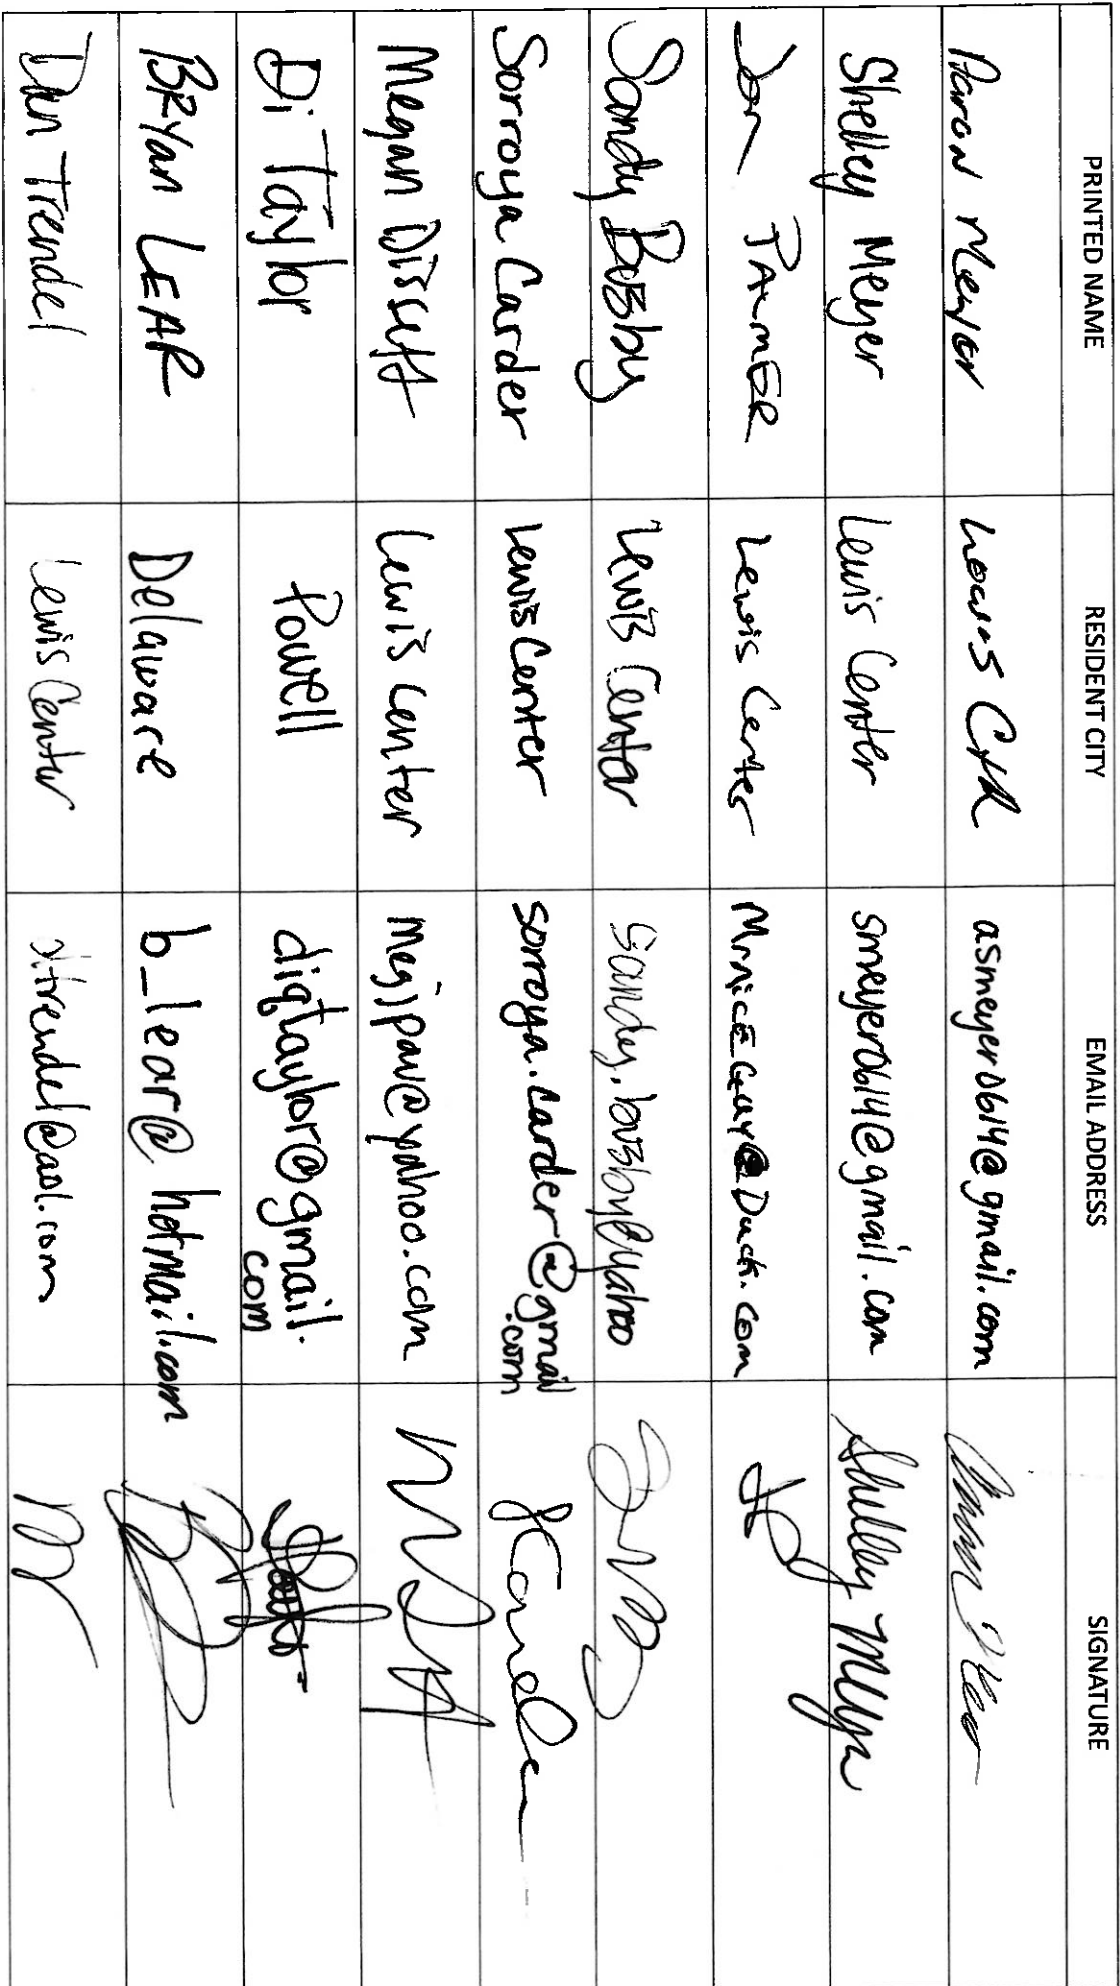 PRINTED NAME RESIDENT CITY EMAIL ADDRESS SIGNATURE
Aaron Meyer Lewis Ctr asmeyer0614@gmail.com
Shelley Meyer Lewis Center smeyer0614@gmail.com Shelley Meyer
Jon PALMER Lewis Center MrNiceGuy@Duck.com
Sandy Busby Lewis Center Sandy.busby@yahoo
Sorroya Carder Lewis Center sorroya.carder@gmail
.com
Megan Dissett Lewis Center megjpaw@yahoo.com
Di Taylor Powell digtaylor@gmail.
com
BRYan LEAR Delaware b_lear@hotmail.com
Dan Trendel Lewis Center dtrendel@aol.com